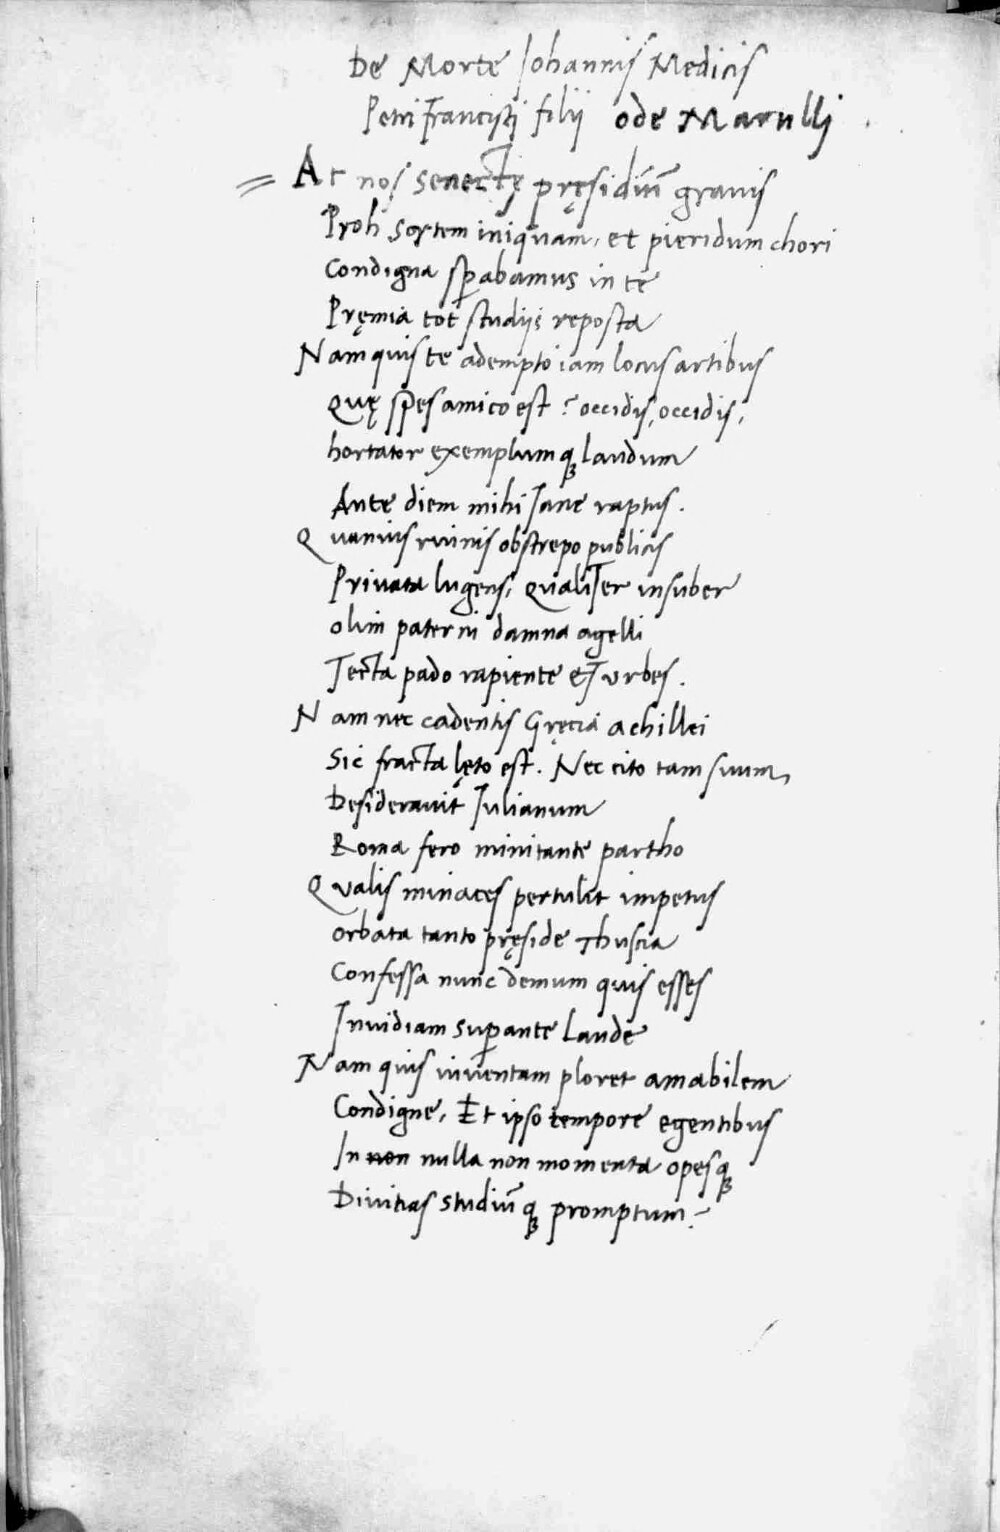 De Morte Johannis Medicis
Petri Francisci filii ode Marulli
At nos senectę pręsidiū gravis
Proh sortem iniquam, et pieridum chori
Condigna sꝑabamus in te
Pręmia tot studiis reposta
Nam quis te adempto iam locus artibus
Quę spes amico est? occidis, occidis,
hortator exemplumqꝫ laudum
Ante diem mihi Jane raptus.
Quamvis ruinis obstrepo publicis
Privata lugens, qualiter insuber
olim paterni damna agelli
Tecta pado rapiente et urbes.
Nam nec cadentis Gręcia achillei
Sic fracta lęto est. Nec cito tam suum,
Desideravit Julianum
Roma fero minitante partho
Qualis minaces pertulit impetus
orbata tanto pręside Thuscia
Confessa nunc demum quis esses
Invidiam suꝑante laude
Nam quis iuventam ploret amabilem
Condigne, Et ipso tempore egentibus
In non nulla non momenta opesqꝫ
Divitias studiūqꝫ promptum?